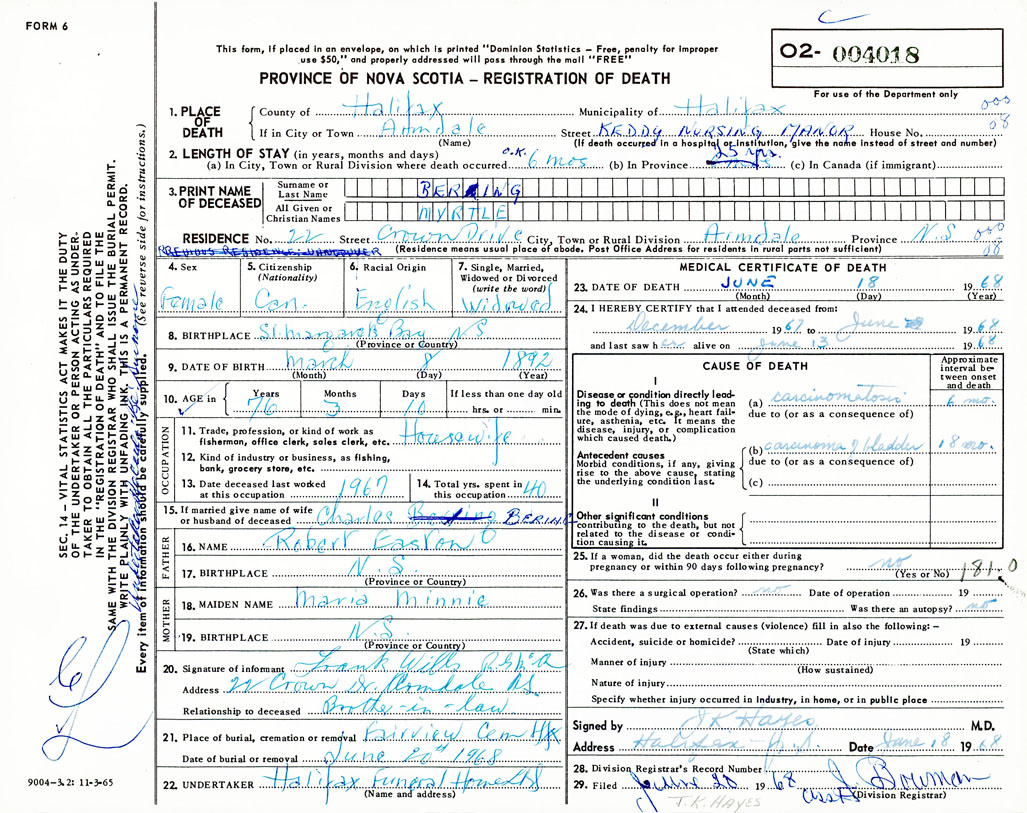 FORM 6
C
This form, if placed in an envelope, on which is printed "Dominion Statistics – Free, penalty for improper
use $50," and properly addressed will pass through the mail "FREE"
PROVINCE OF NOVA SCOTIA – REGISTRATION OF DEATH
02- 004018
For use of the Department only
1. PLACE OF DEATH
County of Halifax Municipality of Halifax 000
If in City or Town Armdale Street KEDDY NURSING MANOR House No. 08
(Name) (If death occurred in a hospital or institution, give the name instead of street and number)
2. LENGTH OF STAY (in years, months and days) O.K. 25 yrs.
(a) In City, Town or Rural Division where death occurred 6 mos (b) In Province (c) In Canada (if immigrant)
3. PRINT NAME OF DECEASED
Surname or Last Name BERING
All Given or Christian Names MYRTLE
RESIDENCE No. 22 Street Crown Drive City, Town or Rural Division Armdale Province N.S 000
(Residence means usual place of abode. Post Office Address for residents in rural parts not sufficient) 08
PREVIOUS RESIDENCE: VANCOUVER
4. Sex Female
5. Citizenship (Nationality) Can.
6. Racial Origin English
7. Single, Married, Widowed or Divorced (write the word) Widowed
8. BIRTHPLACE St. Margarets Bay N S
(Province or Country)
9. DATE OF BIRTH March 8 1892
(Month) (Day) (Year)
10. AGE in Years 76 Months 3 Days 10 If less than one day old hrs. or min.
OCCUPATION
11. Trade, profession, or kind of work as fisherman, office clerk, sales clerk, etc. Housewife
12. Kind of industry or business, as fishing, bank, grocery store, etc.
13. Date deceased last worked at this occupation 1967
14. Total yrs. spent in this occupation 40
15. If married give name of wife or husband of deceased Charles BERING
FATHER
16. NAME Robert Easton
17. BIRTHPLACE N.S.
(Province or Country)
MOTHER
18. MAIDEN NAME Maria Minnie
19. BIRTHPLACE N.S.
(Province or Country)
20. Signature of informant Frank Wills
Address 22 Crown Dr. Armdale NS.
Relationship to deceased Brother-in-law
21. Place of burial, cremation or removal Fairview Cem Hfx
Date of burial or removal June 20th 1968
22. UNDERTAKER Halifax Funeral Home Ltd
(Name and address)
MEDICAL CERTIFICATE OF DEATH
23. DATE OF DEATH JUNE 18 1968
(Month) (Day) (Year)
24. I HEREBY CERTIFY that I attended deceased from:
December 1967 to June 1968
and last saw her alive on June 13 1968
CAUSE OF DEATH
Approximate interval between onset and death
I
Disease or condition directly leading to death (This does not mean the mode of dying, e.g., heart failure, asthenia, etc. It means the disease, injury, or complication which caused death.)
(a) carcinomatosis 6 mo.
due to (or as a consequence of)
Antecedent causes
Morbid conditions, if any, giving rise to the above cause, stating the underlying condition last.
(b) carcinoma of bladder 18 mo.
due to (or as a consequence of)
(c)
II
Other significant conditions
contributing to the death, but not related to the disease or condition causing it.
25. If a woman, did the death occur either during pregnancy or within 90 days following pregnancy? no
(Yes or No) 181.0
26. Was there a surgical operation? no Date of operation 19
State findings Was there an autopsy? no
27. If death was due to external causes (violence) fill in also the following: –
Accident, suicide or homicide? Date of injury 19
(State which)
Manner of injury
(How sustained)
Nature of injury
Specify whether injury occurred in industry, in home, or in public place
Signed by J K Hayes M.D.
Address Halifax N.S. Date June 18 1968
28. Division Registrar's Record Number
29. Filed June 20 1968 J. Bowman
Asst (Division Registrar)
J.K. HAYES
SEC. 14 – VITAL STATISTICS ACT MAKES IT THE DUTY
OF THE UNDERTAKER OR PERSON ACTING AS UNDER-
TAKER TO OBTAIN ALL THE PARTICULARS REQUIRED
IN THE "REGISTRATION OF DEATH" AND TO FILE THE
SAME WITH THE DIVISION REGISTRAR WHO SHALL ISSUE THE BURIAL PERMIT.
WRITE PLAINLY WITH UNFADING INK. THIS IS A PERMANENT RECORD.
Every item of information should be carefully supplied. (See reverse side for instructions.)
9004-3.2: 11-3-65